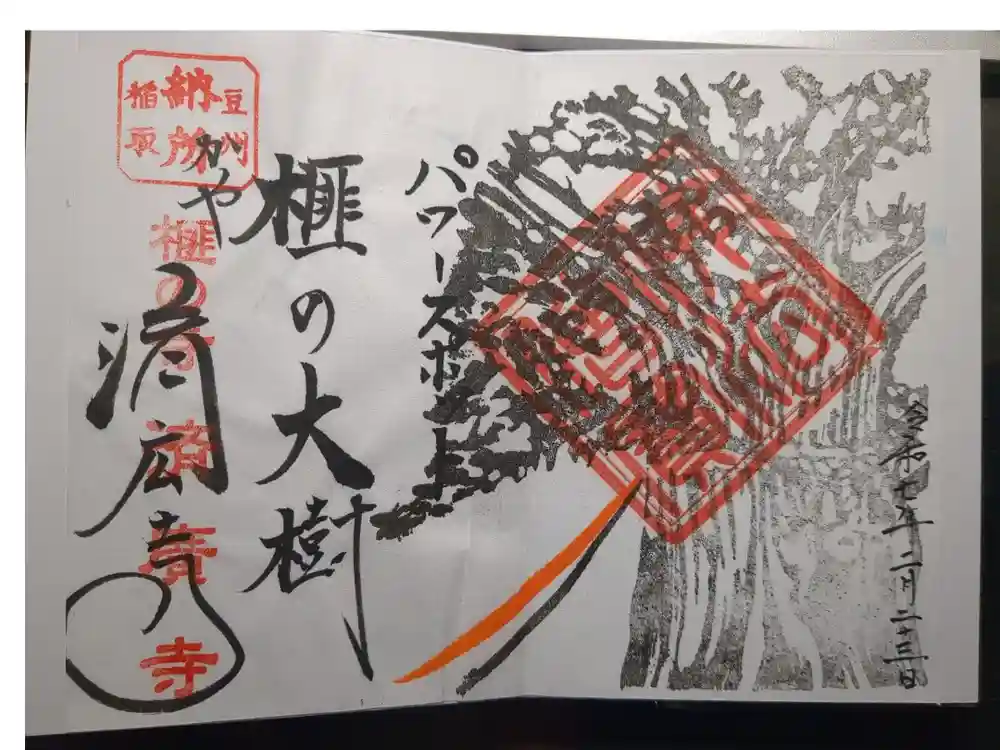 令和七年二月二十三日
パワースポット
榧の大樹
かや
済広寺
豆州
納所
稲取
榧の寺
済廣寺